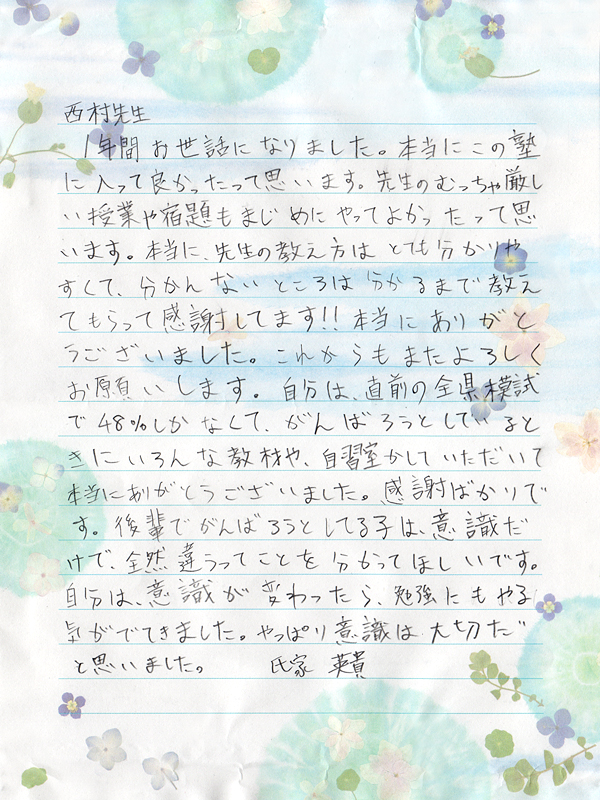 西村先生
1年間お世話になりました。本当にこの塾
に入って良かったって思います。先生のむっちゃ厳し
い授業や宿題もまじめにやってよかったって思
います。本当に、先生の教え方はとても分かりや
すくて、分かんないところは分かるまで教え
てもらって感謝してます!!本当にありがと
うございました。これからもまたよろしく
お願いします。自分は、直前の全県模試
で48%しかなくて、がんばろうとしていると
きにいろんな教材や、自習室かしていただいて
本当にありがとうございました。感謝ばかりで
す。後輩でがんばろうとしてる子は、意識だ
けで、全然違うってことを分かってほしいです。
自分は、意識が変わったら、勉強にもやる
気がでてきました。やっぱり意識は大切だ
と思いました。 氏家 英貴